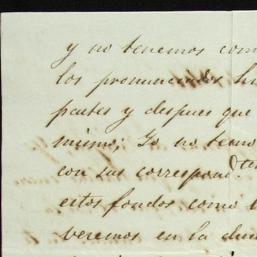 y no tenemos com
los pronunciados h
partes y despues que
mismo; Yo no
con sus correspond.tes
estos fondos como
veremos en la